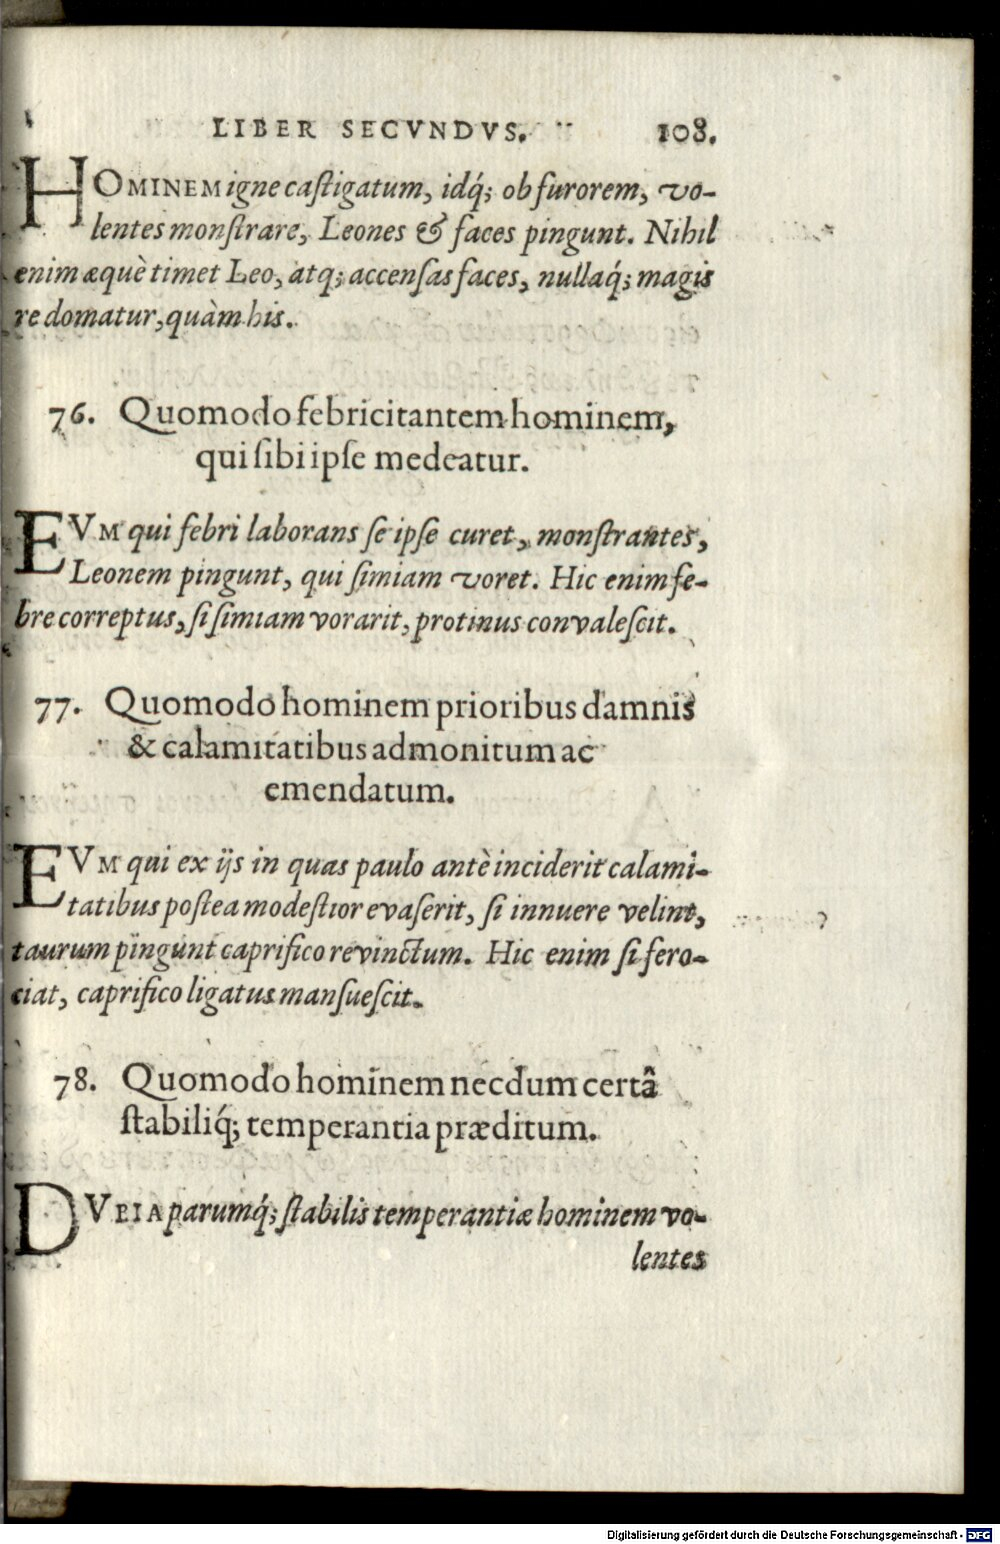 LIBER SECVNDVS. 108.
HOMINEM igne caſtigatum, idq́; ob furorem, vo-
lentes monſtrare, Leones & faces pingunt. Nihil
enim æquè timet Leo, atq; accenſas faces, nullaq́; magis
re domatur, quàm his.
76. Quomodo febricitantem hominem,
qui ſibi ipſe medeatur.
EVM qui febri laborans ſe ipſe curet, monſtrantes,
Leonem pingunt, qui ſimiam voret. Hic enim fe-
bre correptus, ſi ſimiam vorarit, protinus convaleſcit.
77. Quomodo hominem prioribus damnis
& calamitatibus admonitum ac
emendatum.
EVM qui ex ijs in quas paulo antè inciderit calami-
tatibus poſtea modeſtior evaſerit, ſi innuere velint,
taurum pingunt caprifico revinctum. Hic enim ſi fero-
ciat, caprifico ligatus manſueſcit.
78. Quomodo hominem necdum certâ
ſtabiliq́; temperantia præditum.
DVBIA parumq́; ſtabilis temperantiæ hominem vo-
lentes
Digitalisierung gefördert durch die Deutsche Forschungsgemeinschaft - DFG